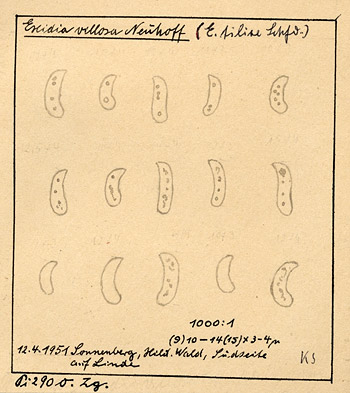 Exidia villosa Neuhoff (E. tiliae Schfd.)
1000:1
(9)10-14(15)×3-4µ
12.4.1951 Sonnenberg, Hild. Wald, Südseite
auf Linde
KS
Pi 290 v. Zg.